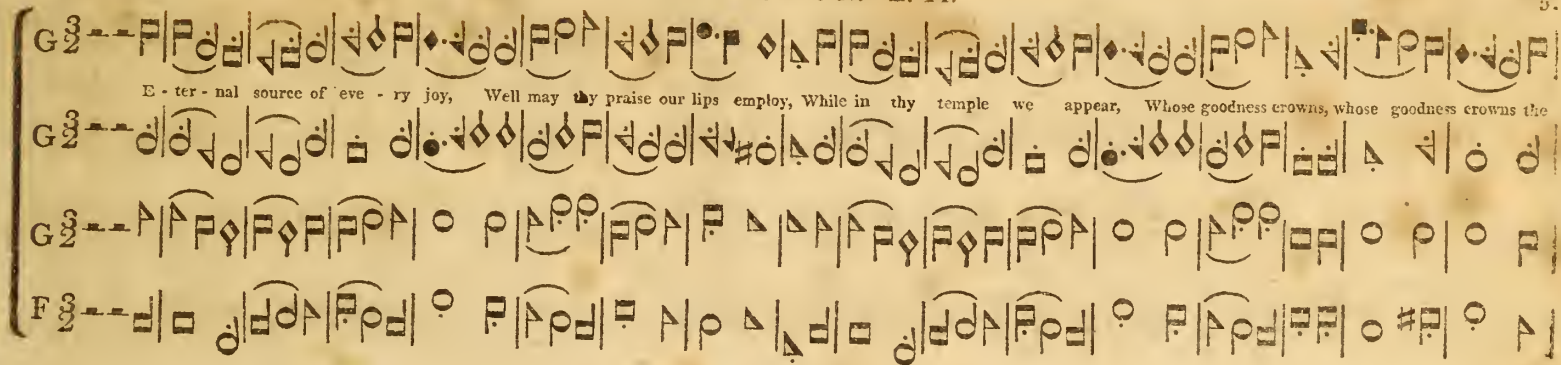 L. M.
G 3/2
E - ter - nal source of eve - ry joy, Well may thy praise our lips employ, While in thy temple we appear, Whose goodness crowns, whose goodness crowns the
G 3/2
G 3/2
F 3/2